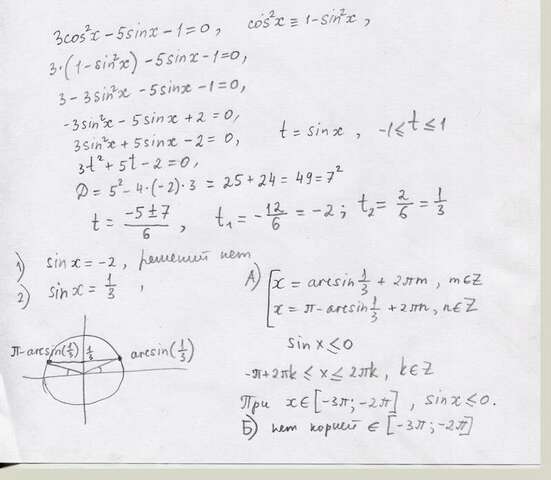 3cos²x - 5sinx - 1 = 0, cos²x ≡ 1 - sin²x,
3·(1 - sin²x) - 5sinx - 1 = 0,
3 - 3sin²x - 5sinx - 1 = 0,
-3sin²x - 5sinx + 2 = 0,
3sin²x + 5sinx - 2 = 0, t = sinx, -1 ≤ t ≤ 1
3t² + 5t - 2 = 0,
D = 5² - 4·(-2)·3 = 25 + 24 = 49 = 7²
t = (-5 ± 7)/6, t₁ = -12/6 = -2; t₂ = 2/6 = 1/3
1) sinx = -2, решений нет
2) sinx = 1/3,
А) [ x = arcsin 1/3 + 2πm, m∈Z
x = π - arcsin 1/3 + 2πn, n∈Z
π-arcsin(1/3) 1/3 arcsin(1/3)
sinx ≤ 0
-π + 2πk ≤ x ≤ 2πk, k∈Z
При x∈[-3π; -2π], sinx ≤ 0.
Б) нет корней ∈ [-3π; -2π]